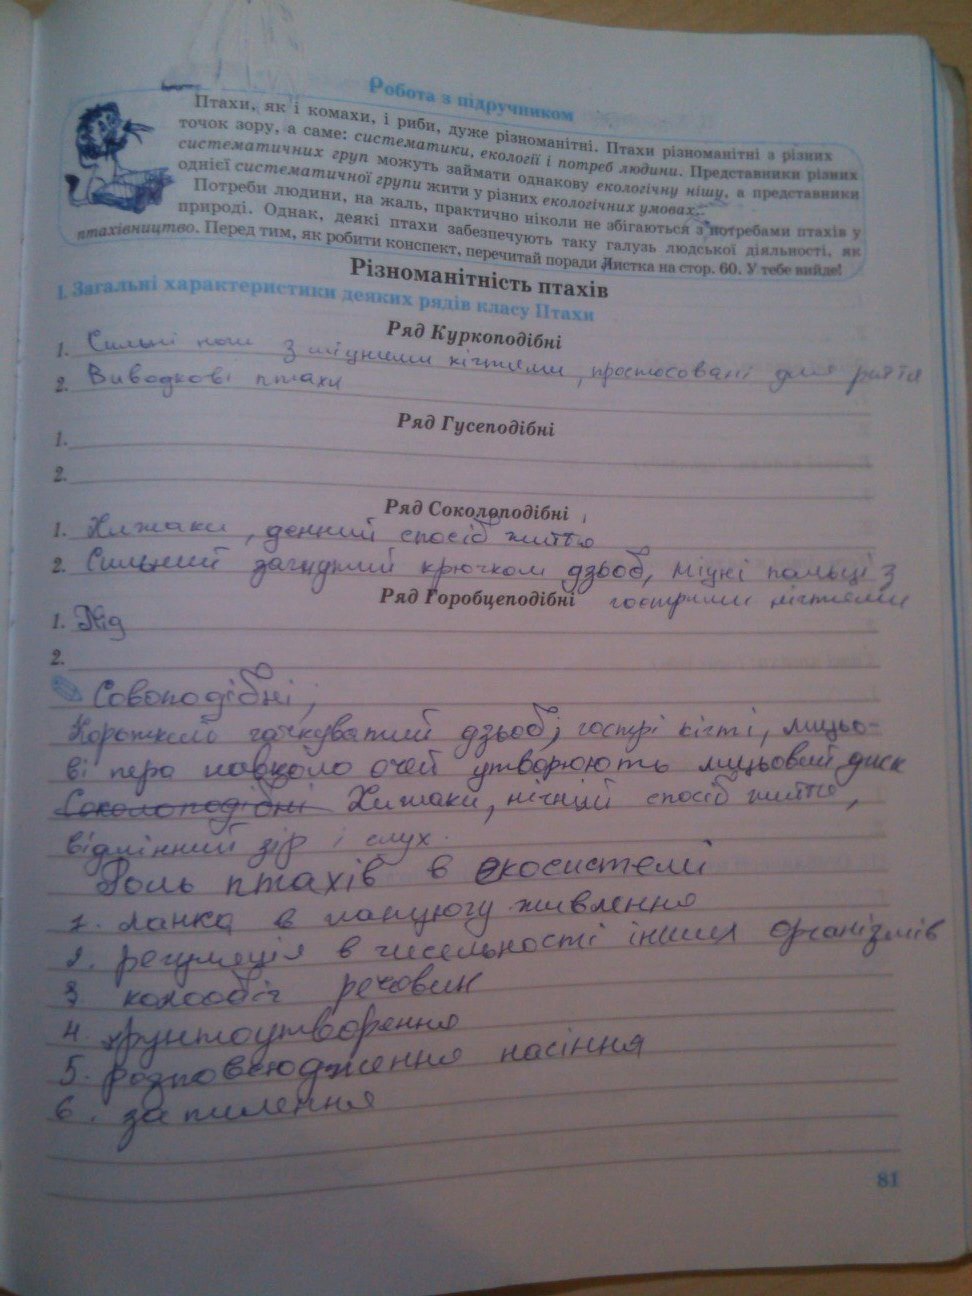 Робота з підручником
Птахи, як і комахи, і риби, дуже різноманітні. Птахи різноманітні з різних
точок зору, а саме: систематики, екології і потреб людини. Представники різних
систематичних груп можуть займати однакову екологічну нішу, а представники
однієї систематичної групи жити у різних екологічних умовах.
Потреби людини, на жаль, практично ніколи не збігаються з потребами птахів у
природі. Однак, деякі птахи забезпечують таку галузь людської діяльності, як
птахівництво. Перед тим, як робити конспект, перечитай поради Листка на стор. 60. У тебе вийде!
Різноманітність птахів
І. Загальні характеристики деяких рядів класу Птахи
Ряд Куркоподібні
1. Сильні ноги з міцними кігтями, простосовані для риття
2. Виводкові птахи
Ряд Гусеподібні
1.
2.
Ряд Соколоподібні
1. Хижаки, денний спосіб життя
2. Сильний загнутий крючком дзьоб, міцні пальці з
гострими кігтями
Ряд Горобцеподібні
1. Під
2.
Совоподібні,
Короткий гачкуватий дзьоб, гострі кігті, лицьо-
ві пера навколо очей утворюють лицьовий диск
Соколоподібні Хижаки, нічний спосіб життя,
відмінний зір і слух.
Роль птахів в екосистемі
1. ланка в ланцюгу живлення
2. регуляція в чисельності інших організмів
3 колообіг речовин
4. грунтоутворення
5. розповсюдження насіння
6. запилення
81